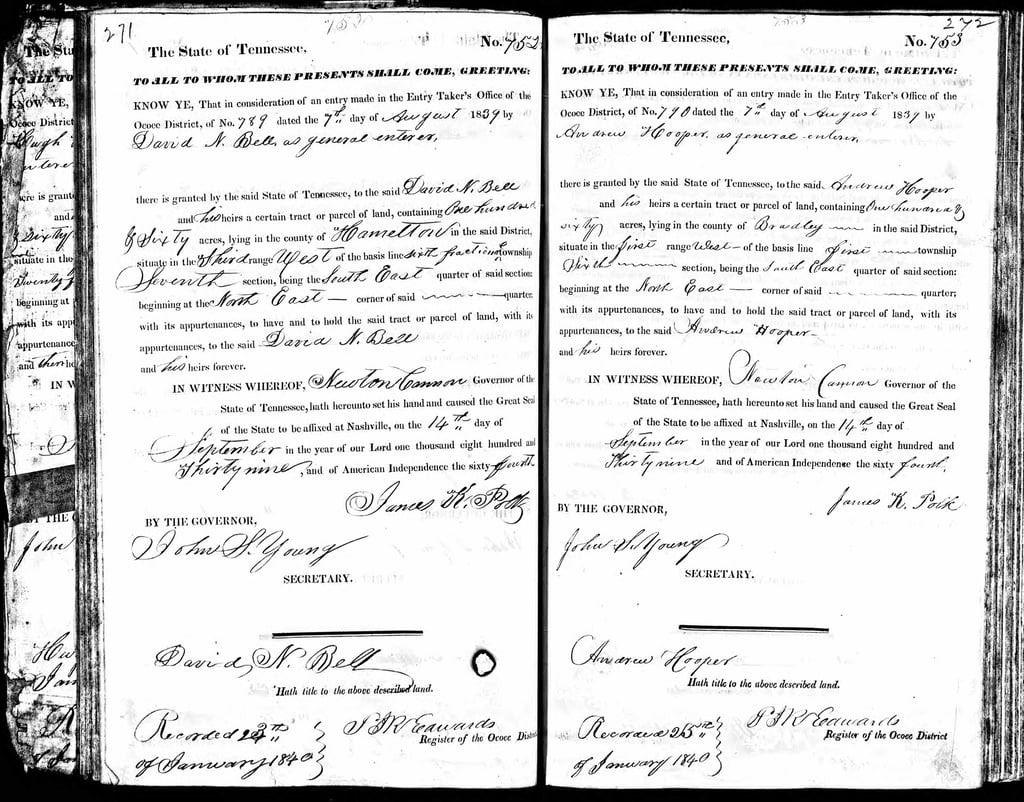 The Sta
TO ALL TO
KNOW YE,
Ocoee District
Hugh
entere
ere is grant
and
& Sixty
situate in the
Twenty f
beginning at
with its app
appurtenance
and their he
IN W
BY THE G
John
271
The State of Tennessee, No. 752
TO ALL TO WHOM THESE PRESENTS SHALL COME, GREETING:
KNOW YE, That in consideration of an entry made in the Entry Taker's Office of the
Ocoee District, of No. 789 dated the 7th day of August 1839 by
David N. Bell, as general enterer,
there is granted by the said State of Tennessee, to the said David N. Bell
and his heirs a certain tract or parcel of land, containing One hundred
& Sixty acres, lying in the county of Hamelton in the said District,
situate in the Third range West of the basis line sixth fractionl township
Seventh section, being the South East quarter of said section:
beginning at the North East — corner of said quarter;
with its appurtenances, to have and to hold the said tract or parcel of land, with its
appurtenances, to the said David N. Bell
and his heirs forever.
IN WITNESS WHEREOF, Newton Cannon Governor of the
State of Tennessee, hath hereunto set his hand and caused the Great Seal
of the State to be affixed at Nashville, on the 14th day of
September in the year of our Lord one thousand eight hundred and
Thirty nine, and of American Independence the sixty fourth.
James K. Polk
BY THE GOVERNOR,
John S. Young
SECRETARY.
David, N. Bell
Hath title to the above described land.
Recorded
of January 1840
Edwards
Register of the Ococe District
753
272
The State of Tennessee, No. 753
TO ALL TO WHOM THESE PRESENTS SHALL COME, GREETING:
KNOW YE, That in consideration of an entry made in the Entry Taker's Office of the
Ocoee District, of No. 790 dated the 7th day of August 1839 by
Andrew Hooper, as general enterer,
there is granted by the said State of Tennessee, to the said Andrew Hooper
and his heirs a certain tract or parcel of land, containing One hundred &
sixty acres, lying in the county of Bradley in the said District,
situate in the first range West — of the basis line first township
Sixth section, being the South East quarter of said section:
beginning at the North East — corner of said quarter;
with its appurtenances, to have and to hold the said tract or parcel of land, with its
appurtenances, to the said Andrew Hooper —
and his heirs forever.
IN WITNESS WHEREOF, Newton Cannon Governor of the
State of Tennessee, hath hereunto set his hand and caused the Great Seal
of the State to be affixed at Nashville, on the 14th day of
September in the year of our Lord one thousand eight hundred and
Thirty nine and of American Independence the sixty fourth.
James K. Polk
BY THE GOVERNOR,
John S. Young
SECRETARY.
Andrew Hooper
Hath title to the above described land.
Recorded 25th
of January 1840
Edwards
Register of the Ococe District